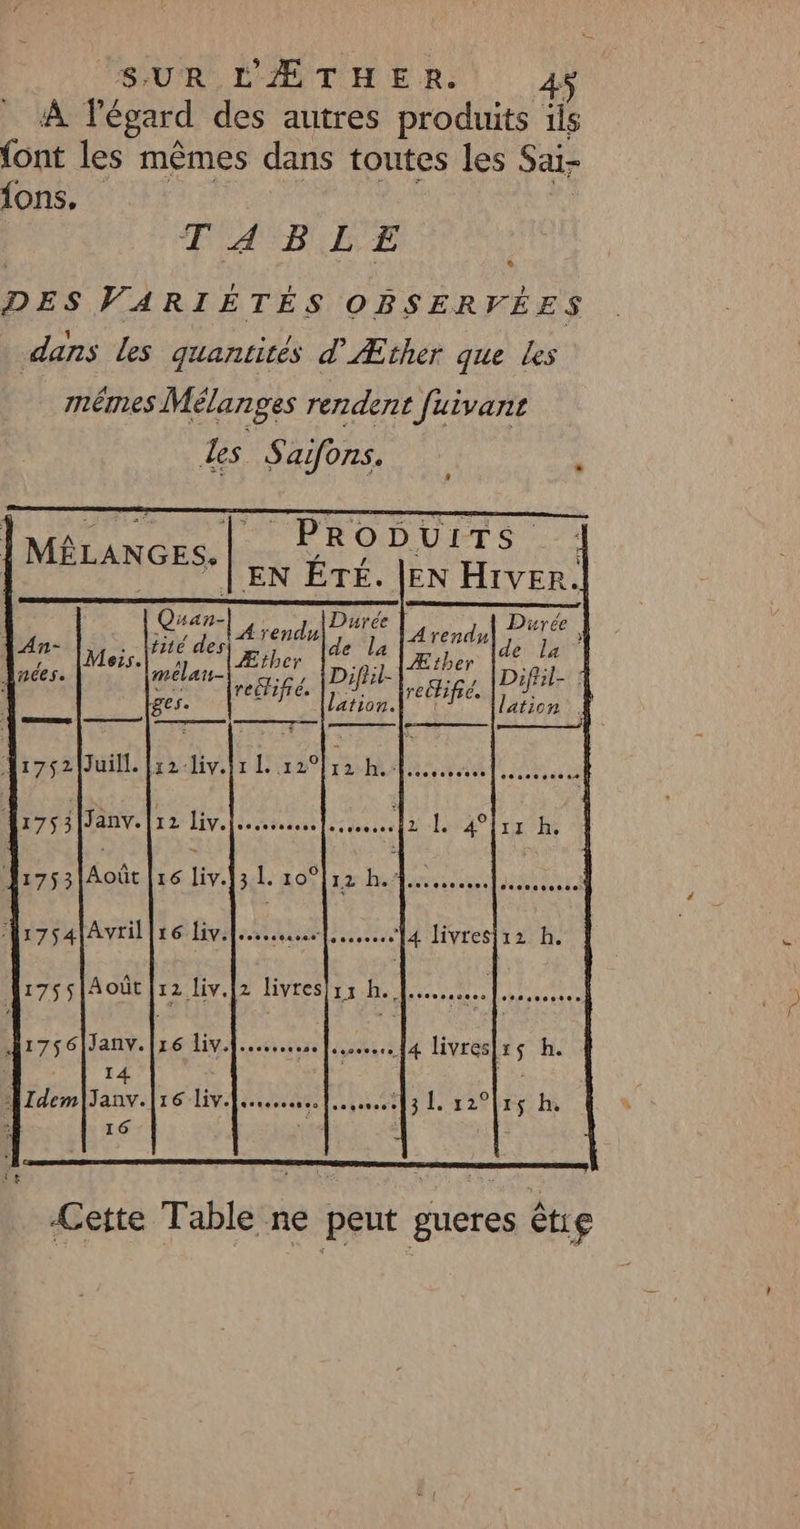 SUR L'ÆTHER. 45
A l'égard des autres produits ils
ſont les mêmes dans toutes les Sai-
ſons.
TABLE
DES VARIÉTÉS OBSERVÉES
dans les quantités d'Æther que les
mêmes Mélanges rendent ſuivant
les Saiſons.
MÊLANGES. | PRODUITS
EN ÉTÉ. | EN HIVER.
An- nées. | Mois. | Quan- tité des mélan- ges. | A rendu Æther rectifié. | Durée de la Diſtil- lation. | A rendu Æther rectifié. | Durée de la Diſtil- lation
1752 | Juill. | 12 liv. | 1 l. 12° | 12 h. | .......... | ..........
1753 | Janv. | 12 liv. | .......... | ......... | 2 l. 4° | 11 h.
1753 | Août | 16 liv. | 3 l. 10° | 12 h. | .......... | ..........
1754 | Avril | 16 liv. | .......... | ......... | 4 livres | 12 h.
1755 | Août | 12 liv. | 2 livres | 13 h. | .......... | ..........
1756 | Janv. 14 | 16 liv. | .......... | ......... | 4 livres | 15 h.
Idem | Janv. 16 | 16 liv. | .......... | ......... | 3 l. 12° | 15 h.
Cette Table ne peut gueres être